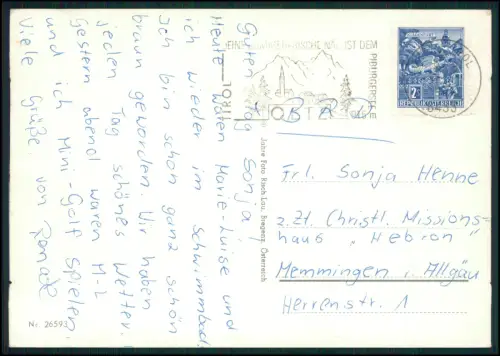 Guten Tag Sonja!
Heute waren Marie-Luise und
ich wieder im Schwimmbad.
Ich bin schon ganz schön
braun geworden. Wir haben
jeden Tag schönes Wetter.
Gestern abend waren M-L
und ich Mini-Golf spielen.
Viele Grüße von
Ronald
Nr. 26593
Foto Risch-Lau, Bregenz, Österreich
IST DEM
2S
REPUBLIK ÖSTERREICH
Frl. Sonja Henne
z.Zt. Christl. Missions-
haus „Hebron"
Memmingen i. Allgäu
Herrenstr. 1